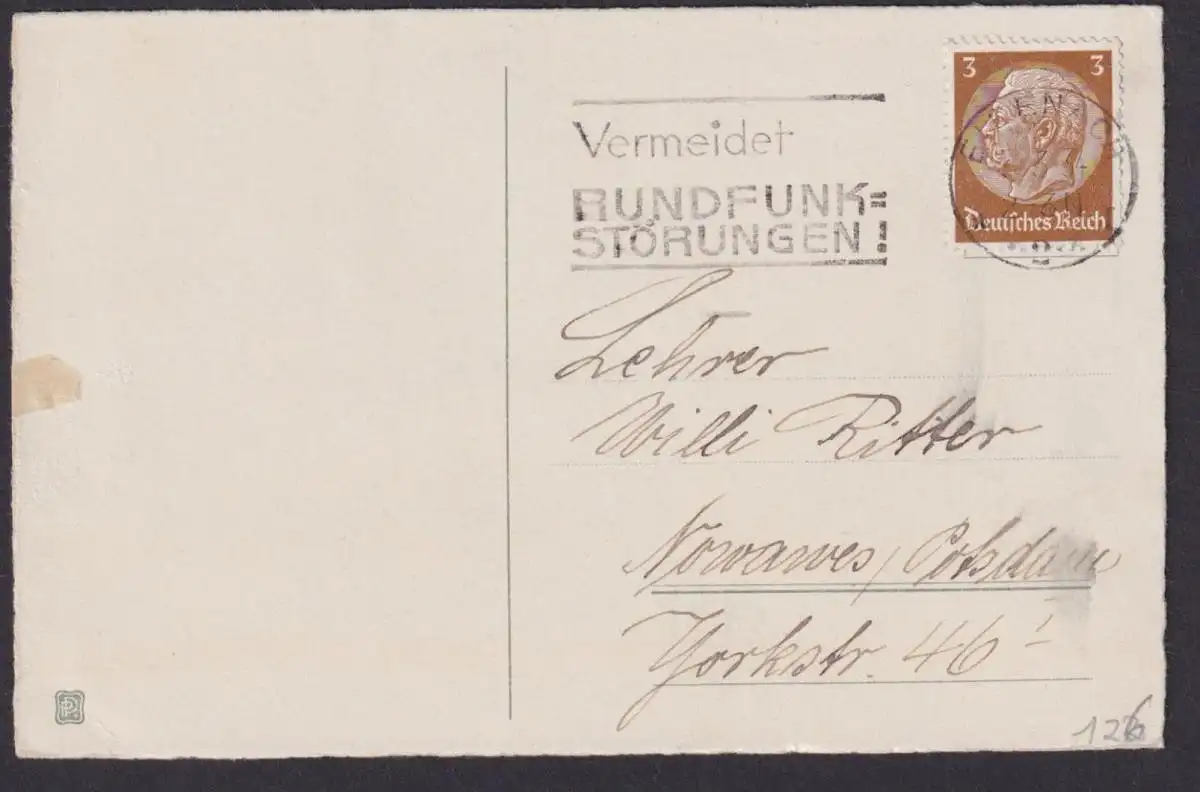 3 3
Deutsches Reich
Vermeidet
RUNDFUNK=
STÖRUNGEN!
2
Lehrer
Willi Ritter
Nowawes / Potsdam
Yorkstr. 46 I
PP.